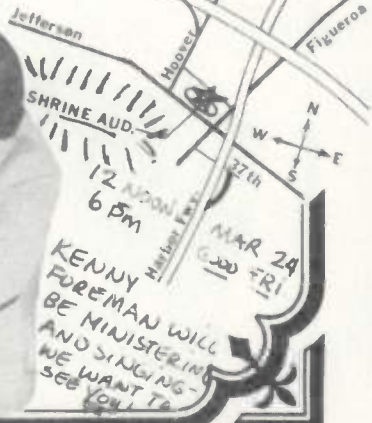 Jefferson
Hoover
Figueroa
SHRINE AUD.
N
W E
S
37th
Harbor Fwy.
12 NOON
6 Pm
MAR 24
GOOD FRI
KENNY
FOREMAN WILL
BE MINISTERING
AND SINGING-
WE WANT TO
SEE YOU!